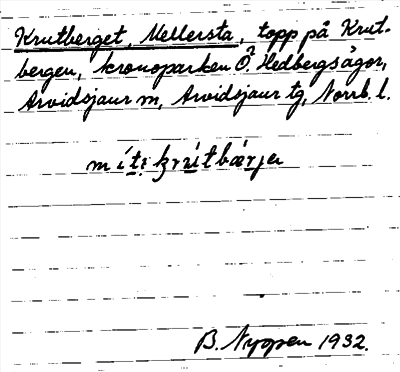 Krutberget, Mellersta, topp på Krut-
bergen, kronoparken Ö. Hedbergsågor,
Arvidsjaur sn, Arvidsjaur tg, Norrb. l.
B. Nyopen 1932.